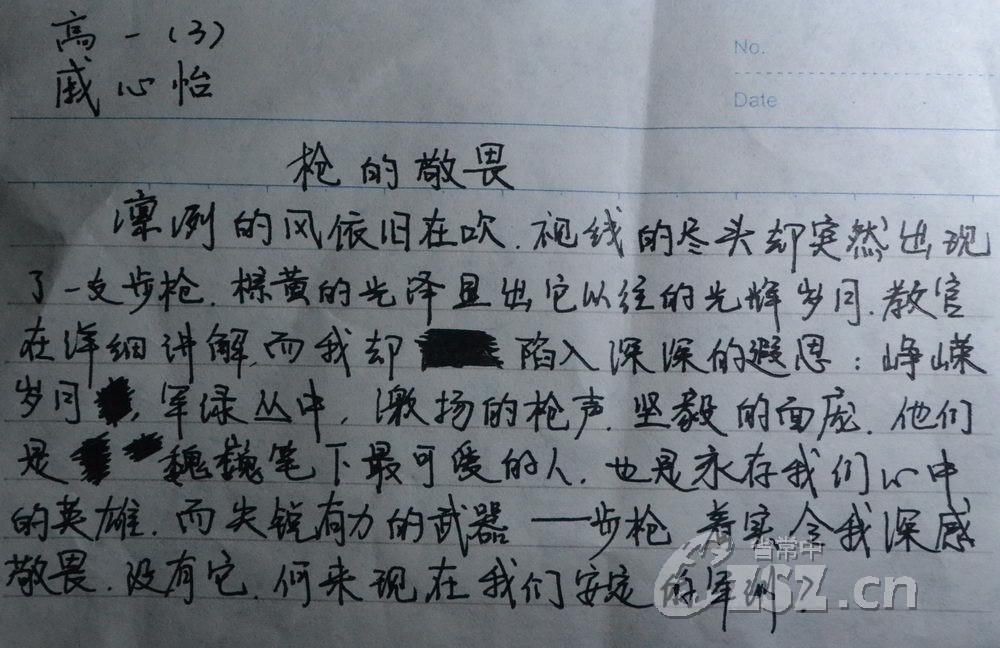 高一(3)
戚心怡
No.
Date
枪的敬畏
凛冽的风依旧在吹,视线的尽头却突然出现
了一支步枪,棕黄的光泽显出它以往的光辉岁月,教官
在详细讲解,而我却陷入深深的遐思:峥嵘
岁月,军绿丛中,激扬的枪声,坚毅的面庞,他们
是魏巍笔下最可爱的人,也是永存我们心中
的英雄,而尖锐有力的武器——步枪,着实令我深感
敬畏,没有它,何来现在我们安定的军训?
省常中
ZSZ.cn